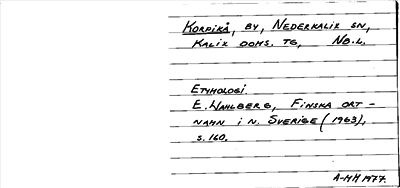 KORPIKÅ, BY, NEDERKALIX SN,
KALIX DOMS. TG, NB.L.
ETYMOLOGI.
E. WAHLBERG, FINSKA ORT-
NAMN I N. SVERIGE (1963),
S. 160.
A-MH 1977.